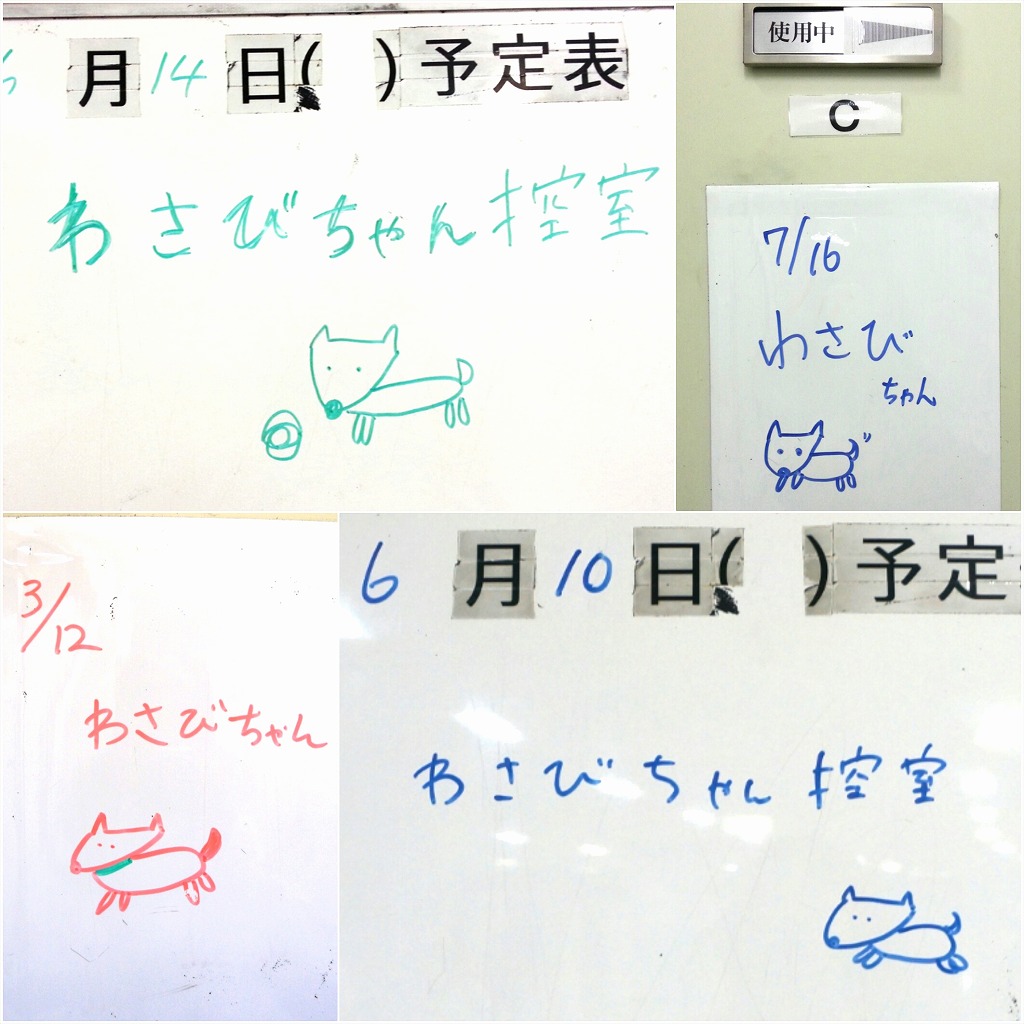 月14日( )予定表
わさびちゃん控室
使用中
C
7/16
わさび
ちゃん
3/12
わさびちゃん
6月10日( )予定
わさびちゃん控室